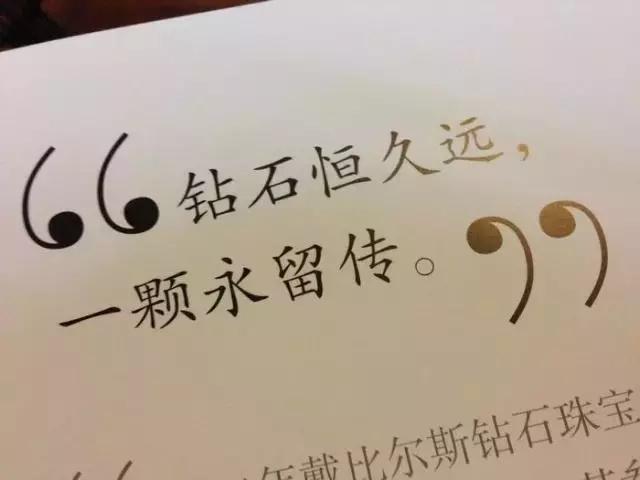 “钻石恒久远，
一颗永留传。”
年戴比尔斯钻石珠宝